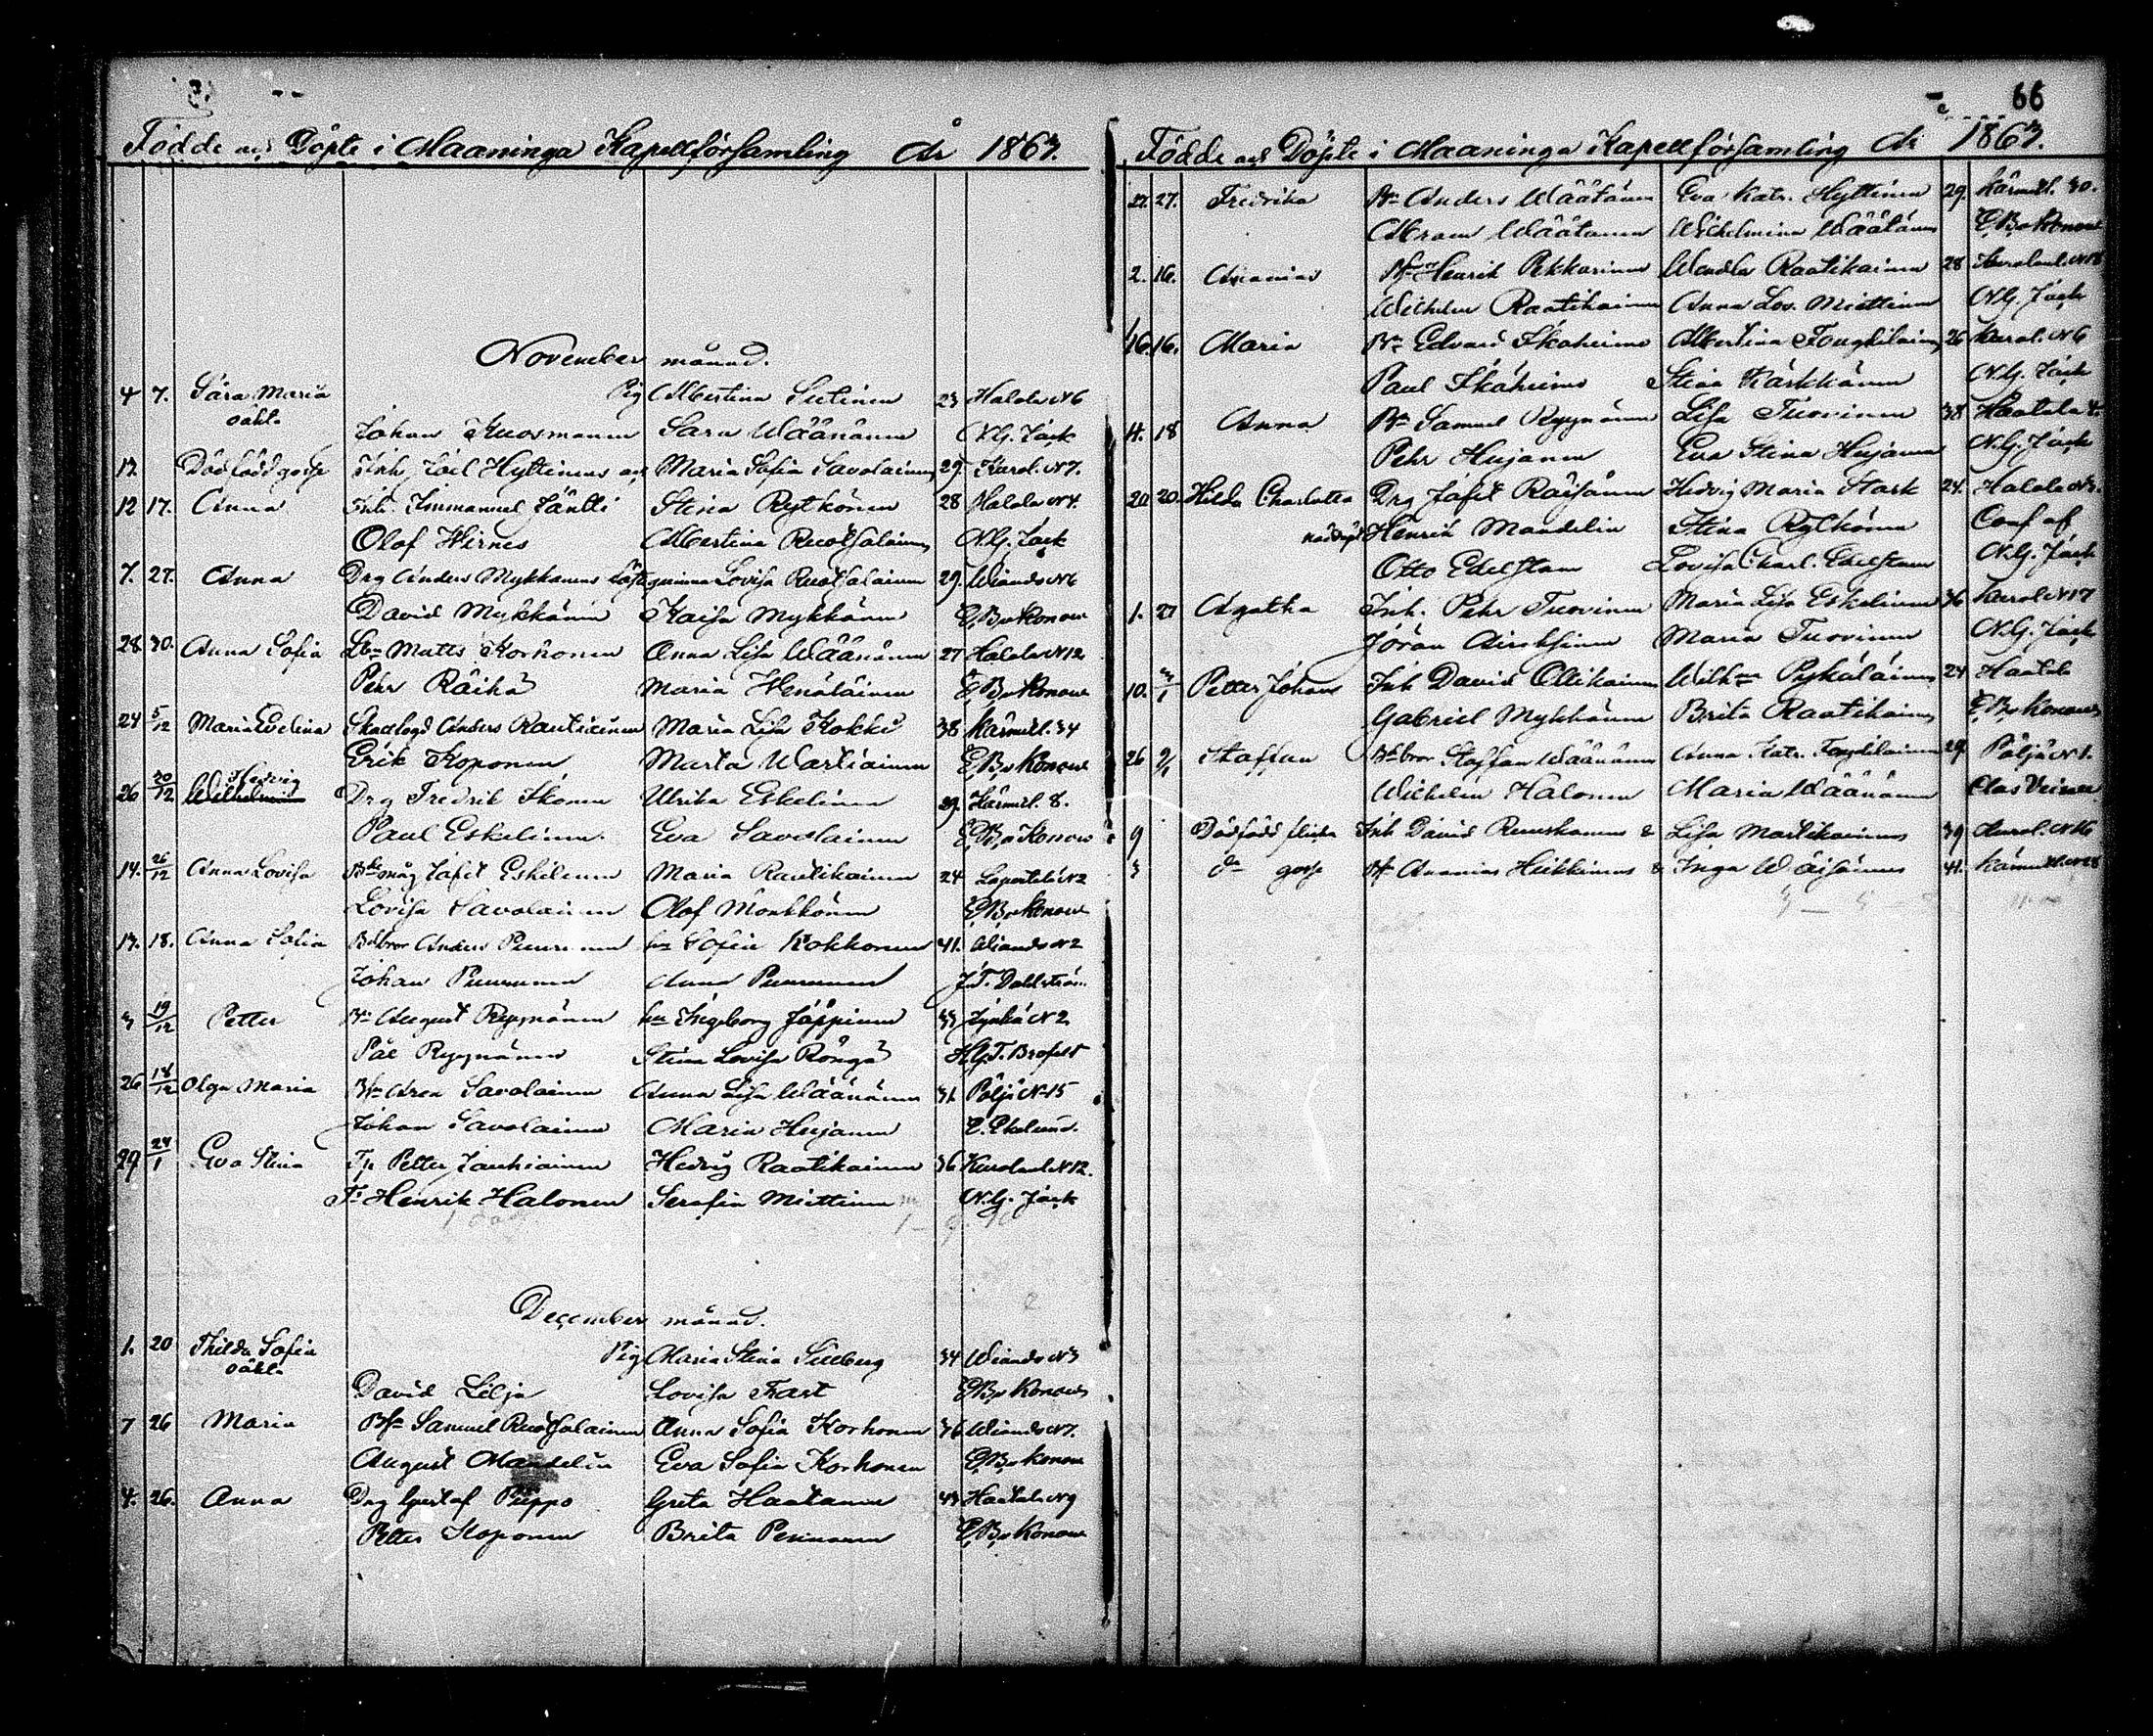 Födde och Döpte i Maaninga Kapellförsamling År 1863.
November månad.
4 7. Sara Maria Pig Albertina Sutinen 23 Halola N6
oäkta Johan Kuosmanen Sara Wäänänen N.G. Jack
13. Dödfödd gosse Inh Joel Hyttinens och Maria Sofia Savolainens 29. Kurol. N7.
12 17. Anna Inh. Immanuel Jäntti Stina Rytkönen 28 Halola N4.
Olof Hirnes Albertina Ruotsalainen N.G. Jack
7. 27. Anna Drg Anders Mykkänens Lovisa Ruotsalainen 29. Wiando N6
David Mykkänen Kaisa Mykkänen E.B. v Konow
28 30. Anna Sofia Matts Korhonen Anna Lisa Wäänänen 27 Halola N12
Pehr Räihä Maria Wenäläinen E.B. v Konow
24 5/12 Maria Evelina Anders Rautiainen Maria Lisa Kokki 38 Kärmel. 34
Erik Koponen Marta Wartiainen E.B. v Konow
Hedvig
26 20/12 Wilhelmina Drg Fredrik Ikonen Ulrika Eskelinen 29. Kärmel. 8.
Paul Eskelinen Eva Savolainen E.B. v Konow
14. 26/12 Anna Lovisa måg Jafet Eskelinen Maria Rautikainen 24 Lapentele N2
Lovisa Savolainen Olof Mönkkönen E.B. v Konow
13. 18. Anna Sofia Bdbror Anders Puurunen hu Sofia Kokkonen 41. Wiando N2
Johan Puurunen Anna Puurunen J.T. Dahlström
3 19/12 Petter Bn August Ryynänen hu Ingeborg Jäppinen 33 Jynkä N2
Pål Ryynänen Stina Lovisa Röngä H.G.T. Brofelt
26 18/12 Olga Maria Aron Savolainen Anna Lisa Wäänänen 31. Pöljä N15
Johan Savolainen Maria Hujanen E. Ekelund.
29 24/1 Eva Stina Tp Petter Jauhiainen Hedvig Raatikainen 36 Kurolanl. N12.
Henrik Halonen Serafia Miettinen N.G. Jack
December månad.
1. 20 Thilda Sofia Pig Maria Stina Silberg 34 Wiando N3
oäkta
David Lilja Lovisa Fast E.B. v Konow
7 26 Maria Samuel Ruotsalainen Anna Sofia Korhonen 36 Wiando N7.
August Mandelin Eva Sofia Korhonen E.B. v Konow
4. 26. Anna Drg Gustaf Pieppo Greta Haatanen 43 Haatala N9
Petter Koponen Brita Pennanen E.B. v Konow
66
Födde och Döpte i Maaninga Kapellförsamling År 1863.
22. 27. Fredrika Bn Anders Wäätänen Eva Katr. Hyttinen 29. Kärmel. 30.
Abram Wäätänen Wilhelmina Wäätänen E.B. v Konow
2. 16. Ananias Henrik Pekkarinen Wendla Raatikainen 28 Kurolanl. N18
Wilhelm Raatikainen Anna Lov. Miettinen N.G. Jack
16. 16. Maria Bn Edvard Ikäheimo Albertina 26 Kurol. N6
Paul Ikäheimo Stina Kärkkäinen N.G. Jack
14. 18 Anna Bn Samuel Ryynänen Lisa Tuovinen 38 Haatala 4.
Pehr Hujanen Eva Stina Hujanen N.G. Jack
20 20. Hilda Charlotta Drg Jafet Räisänen Hedvig Maria Stark 24. Halola N3.
nöddöpt Henrik Mandelin Stina Rytkönen Conf af
Otto Edelstam Lovisa Charl. Edelstam N.G. Jack
1. 27 Agatha Inh. Pehr Tuovinen Maria Lisa Eskelinen 36 Kurol N17
Jöran Airaksinen Maria Tuovinen N.G. Jack
10. 3/1 Petter Johan Inh David Ollikainen Wilhna Pykäläinen 24 Haatala
Gabriel Mykkänen Brita Raatikainen E.B. v Konow
26 2/1 Staffan bror Staffan Wäänänen Anna Katr. 29. Pöljä N1.
Wilhelm Halonen Maria Wäänänen
9 Dödfödd flicka Inh David Ruuskanens & Lisa Martikainens 39 Kurol. N16
3 do gosse Ananias Heikkinens & Inga Wäisänens 41. Kärmel. N28